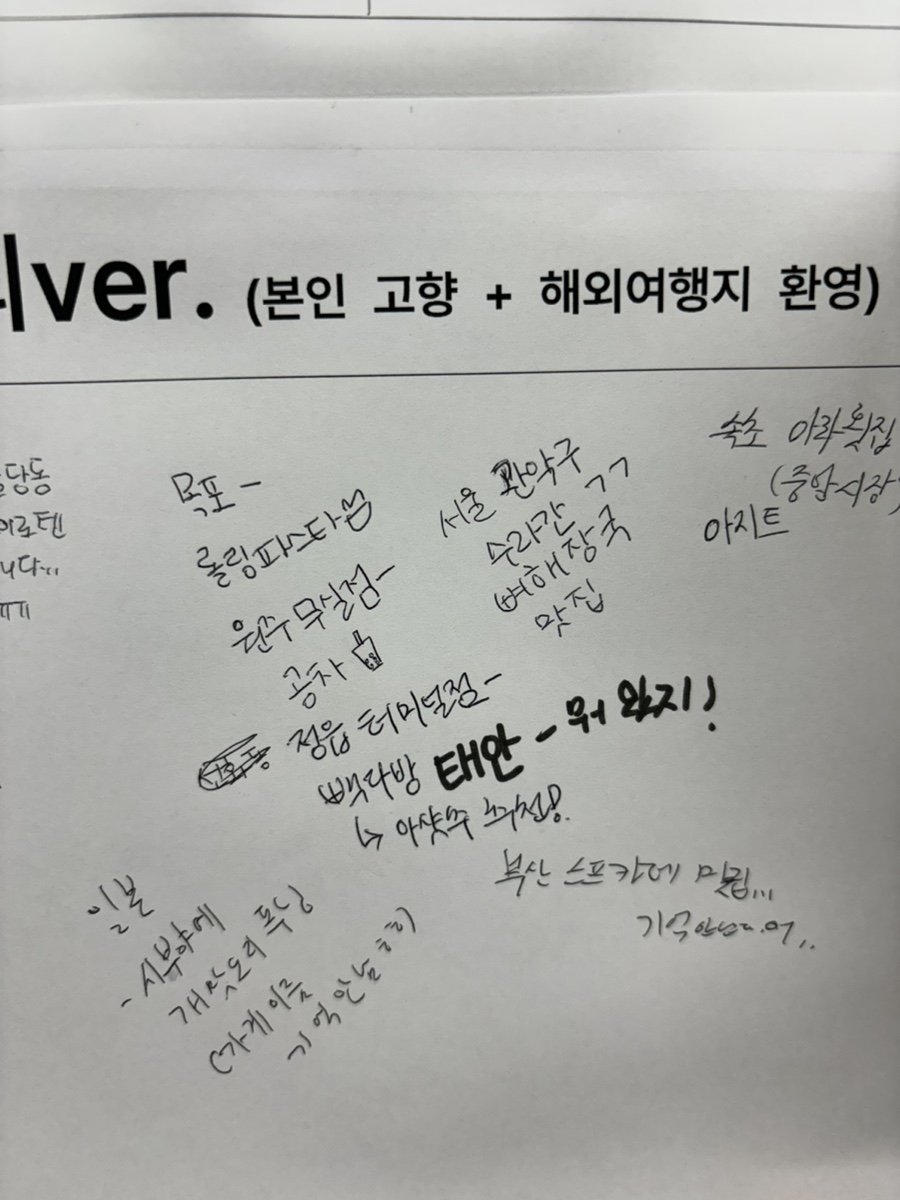 ver. (본인 고향 + 해외여행지 환영)
당동
이로텐
니다..
ㅠㅠ
목포 -
롤링파스타
원주 무실점 -
공차
정읍 터미널점 -
빽다방
↳ 아샷추 추천!
태안 - 뭐 있지!
서울 관악구
수라간 ㄱㄱ
뼈해장국
맛집
속초 아라횟집
(중앙시장)
아지트
일본
- 시부야에
개맛도리 푸딩
(가게이름
기억안남 ㅎㅎ)
부산 스프카레 밀림...
기억안난다.어..